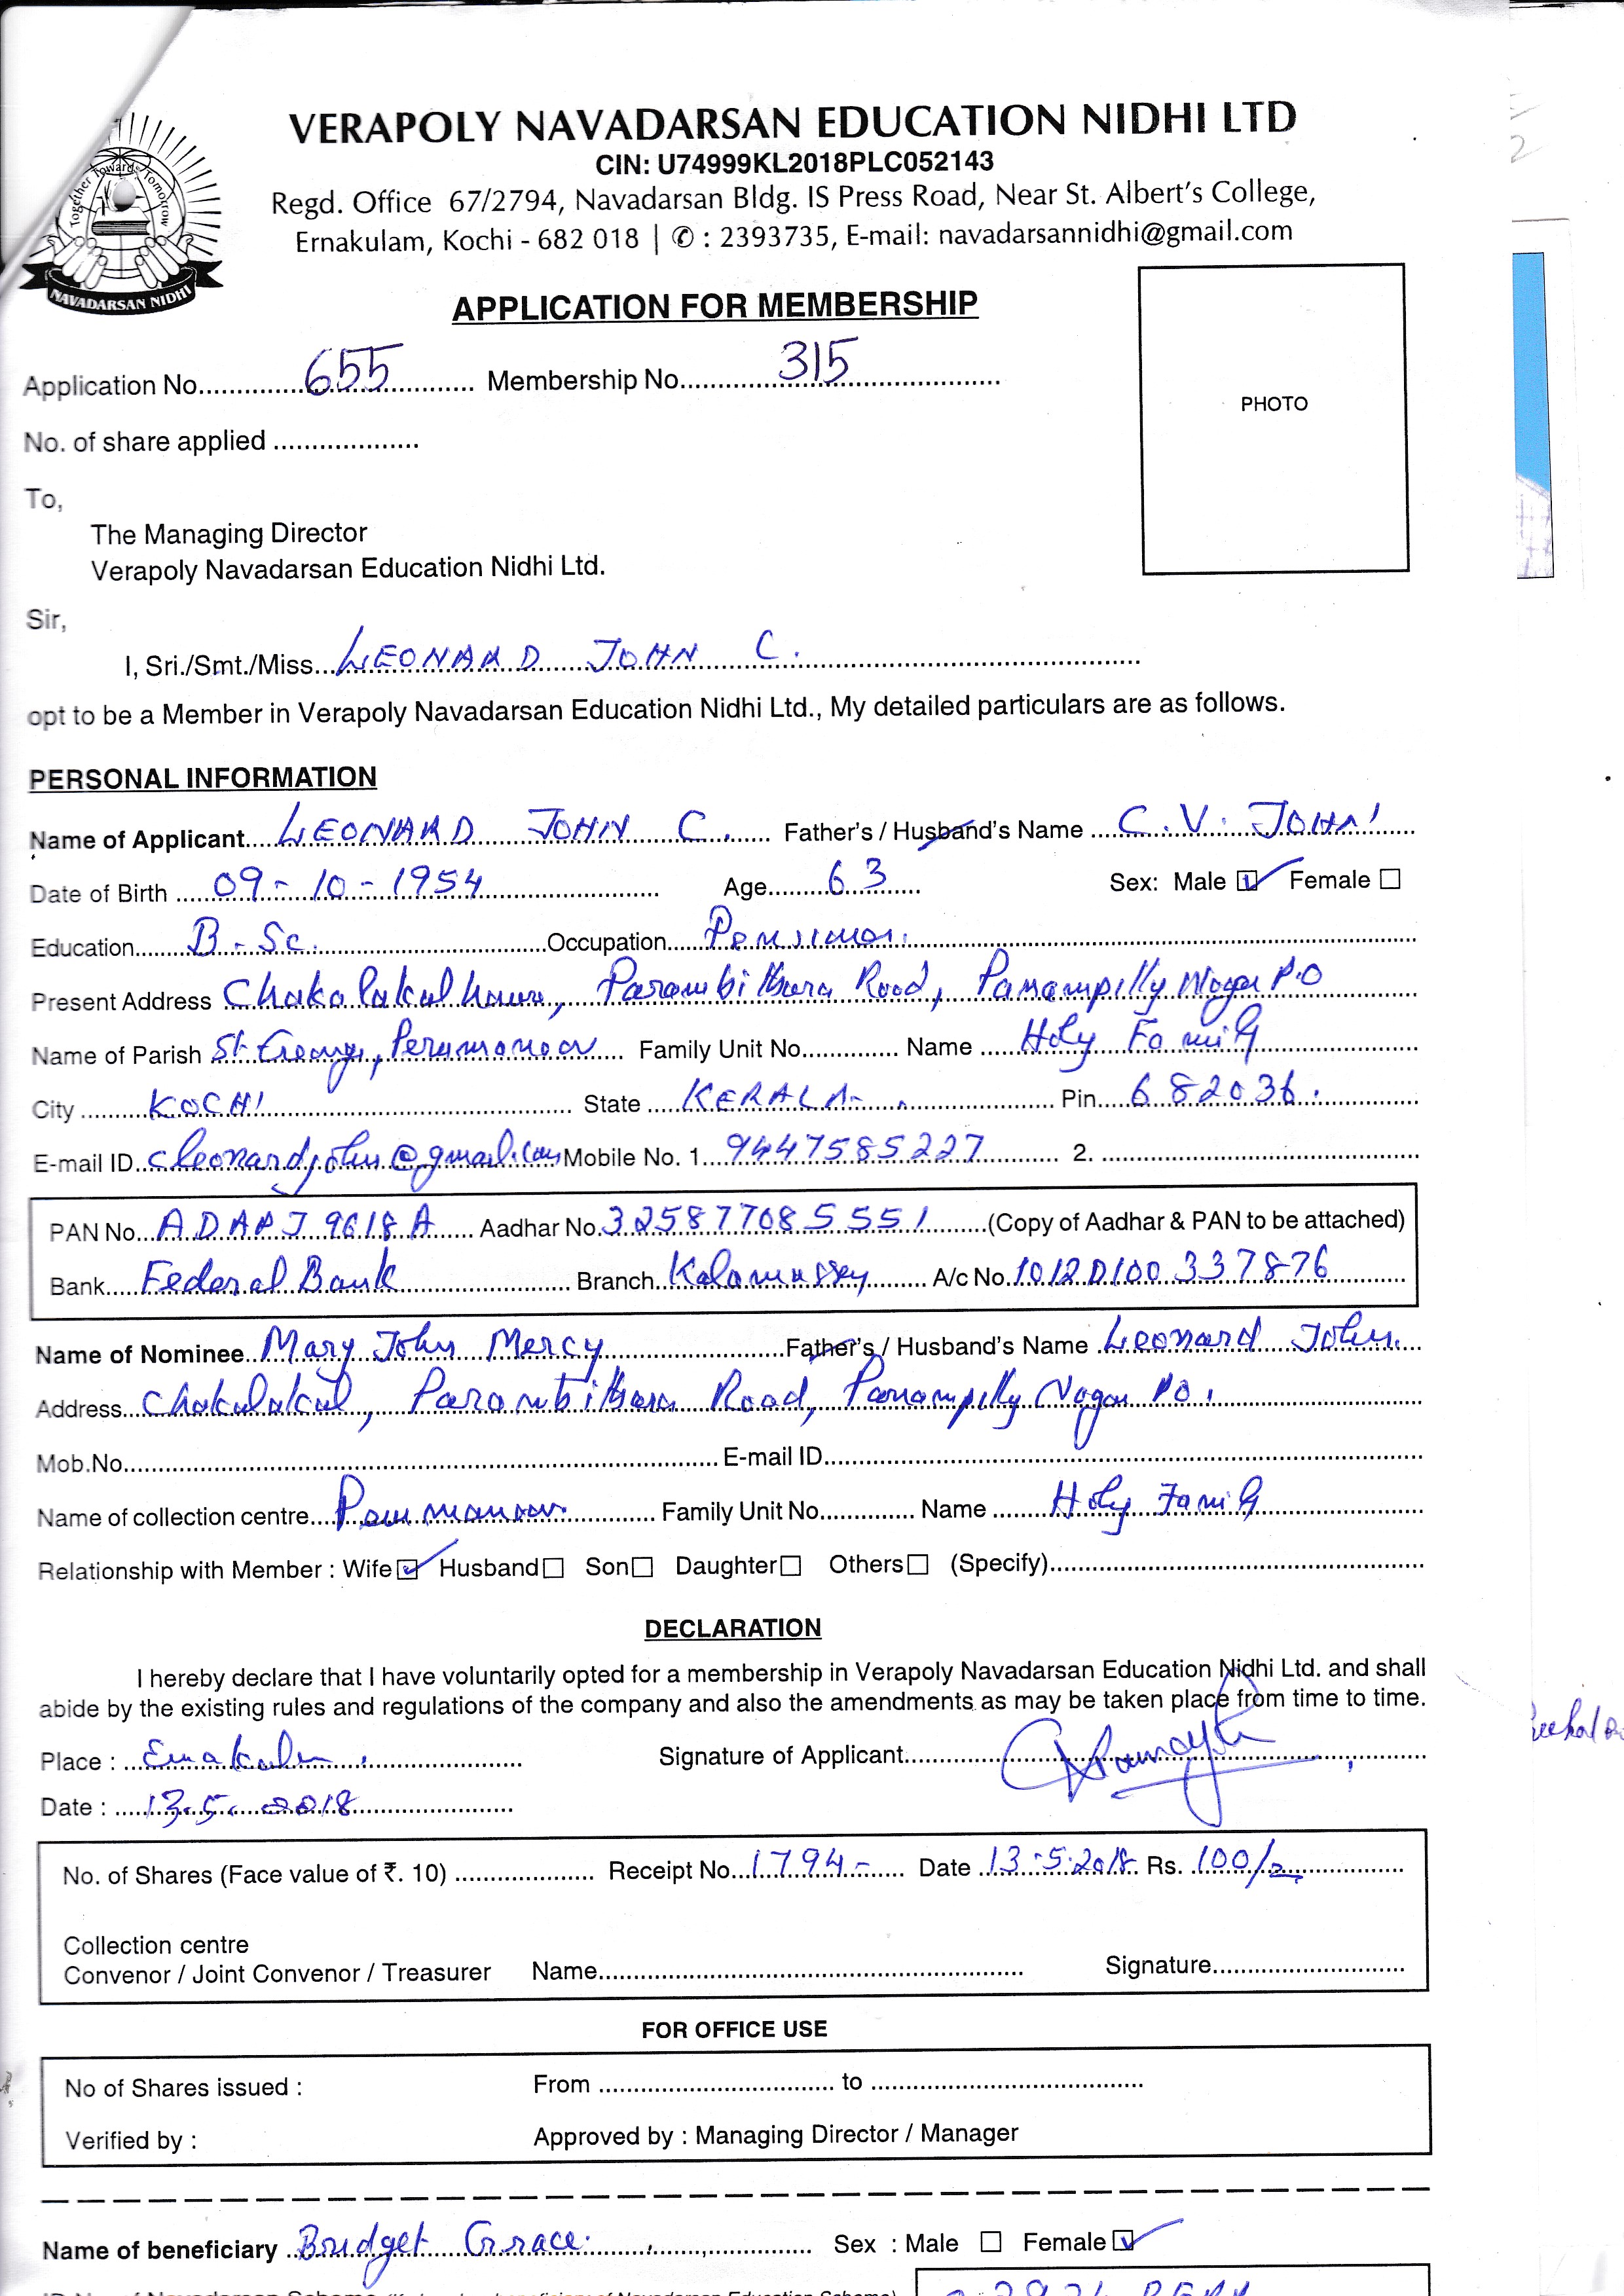 Together Towards Tomorrow
NAVADARSAN NIDHI
VERAPOLY NAVADARSAN EDUCATION NIDHI LTD
CIN: U74999KL2018PLC052143
Regd. Office 67/2794, Navadarsan Bldg. IS Press Road, Near St. Albert's College,
Ernakulam, Kochi - 682 018 | ✆ : 2393735, E-mail: navadarsannidhi@gmail.com
APPLICATION FOR MEMBERSHIP
PHOTO
Application No. 655 Membership No. 315
No. of share applied
To,
The Managing Director
Verapoly Navadarsan Education Nidhi Ltd.
Sir,
I, Sri./Smt./Miss. LEONARD JOHN C.
opt to be a Member in Verapoly Navadarsan Education Nidhi Ltd., My detailed particulars are as follows.
PERSONAL INFORMATION
Name of Applicant LEONARD JOHN C. Father's / Husband's Name C.V. JOHN
Date of Birth 09-10-1954 Age 63 Sex: Male ☑ Female ☐
Education B.Sc. Occupation Pensioner
Present Address Chakalakal house, Parambithara Road, Panampilly Nagar P.O
Name of Parish St. George, Perumanoor Family Unit No. Name Holy Family
City KOCHI State KERALA Pin 682036.
E-mail ID cleonardjohn@gmail.com Mobile No. 1. 9447585227 2.
PAN No. ADAPJ9618A Aadhar No. 325877085551 (Copy of Aadhar & PAN to be attached)
Bank Federal Bank Branch Kalamassey A/c No. 10120100337876
Name of Nominee Mary John Mercy Father's / Husband's Name Leonard John.
Address Chakalakal, Parambithara Road, Panampilly Nagar P.O.
Mob.No. E-mail ID
Name of collection centre Perumanoor Family Unit No. Name Holy Family
Relationship with Member : Wife ☑ Husband ☐ Son ☐ Daughter ☐ Others ☐ (Specify)
DECLARATION
I hereby declare that I have voluntarily opted for a membership in Verapoly Navadarsan Education Nidhi Ltd. and shall
abide by the existing rules and regulations of the company and also the amendments as may be taken place from time to time.
Place : Ernakulam Signature of Applicant
Date : 13.5.2018
No. of Shares (Face value of ₹. 10) Receipt No. 1794 Date 13-5-2018 Rs. 100/-
Collection centre
Convenor / Joint Convenor / Treasurer Name Signature
FOR OFFICE USE
No of Shares issued : From to
Verified by : Approved by : Managing Director / Manager
Name of beneficiary Bridget Grace Sex : Male ☐ Female ☑